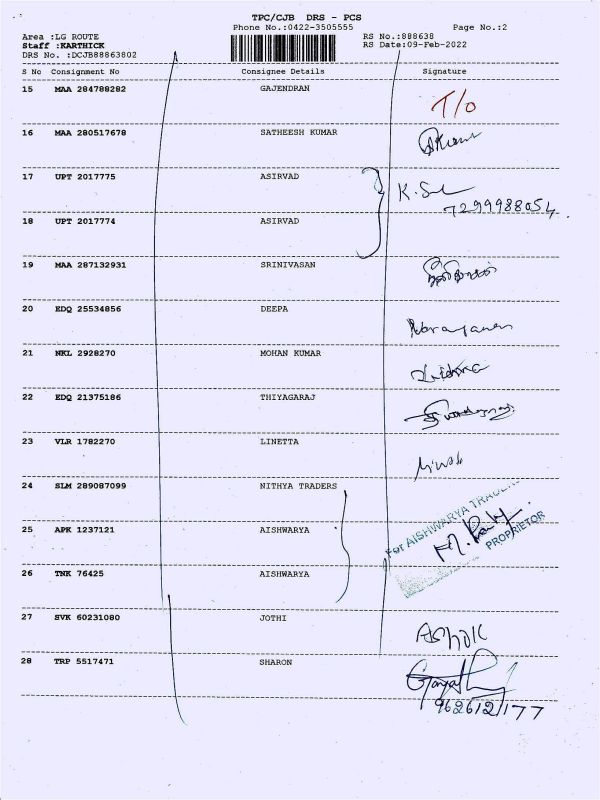 TPC/CJB DRS - PCS
Phone No.:0422-3505555 Page No.:2
Area :LG ROUTE RS No.:888638
Staff :KARTHICK RS Date:09-Feb-2022
DRS No. :DCJB88863802
S No Consignment No Consignee Details Signature
15 MAA 284788282 GAJENDRAN
T/o
16 MAA 280517678 SATHEESH KUMAR
17 UPT 2017775 ASIRVAD
7299988054
18 UPT 2017774 ASIRVAD
19 MAA 287132931 SRINIVASAN
20 EDQ 25534856 DEEPA
21 NKL 2928270 MOHAN KUMAR
22 EDQ 21375186 THIYAGARAJ
23 VLR 1782270 LINETTA
24 SLM 289087099 NITHYA TRADERS
For AISHWARYA TRADERS
25 APK 1237121 AISHWARYA
PROPRIETOR
26 TNK 76425 AISHWARYA
27 SVK 60231080 JOTHI
ASHOK
28 TRP 5517471 SHARON
9626121177